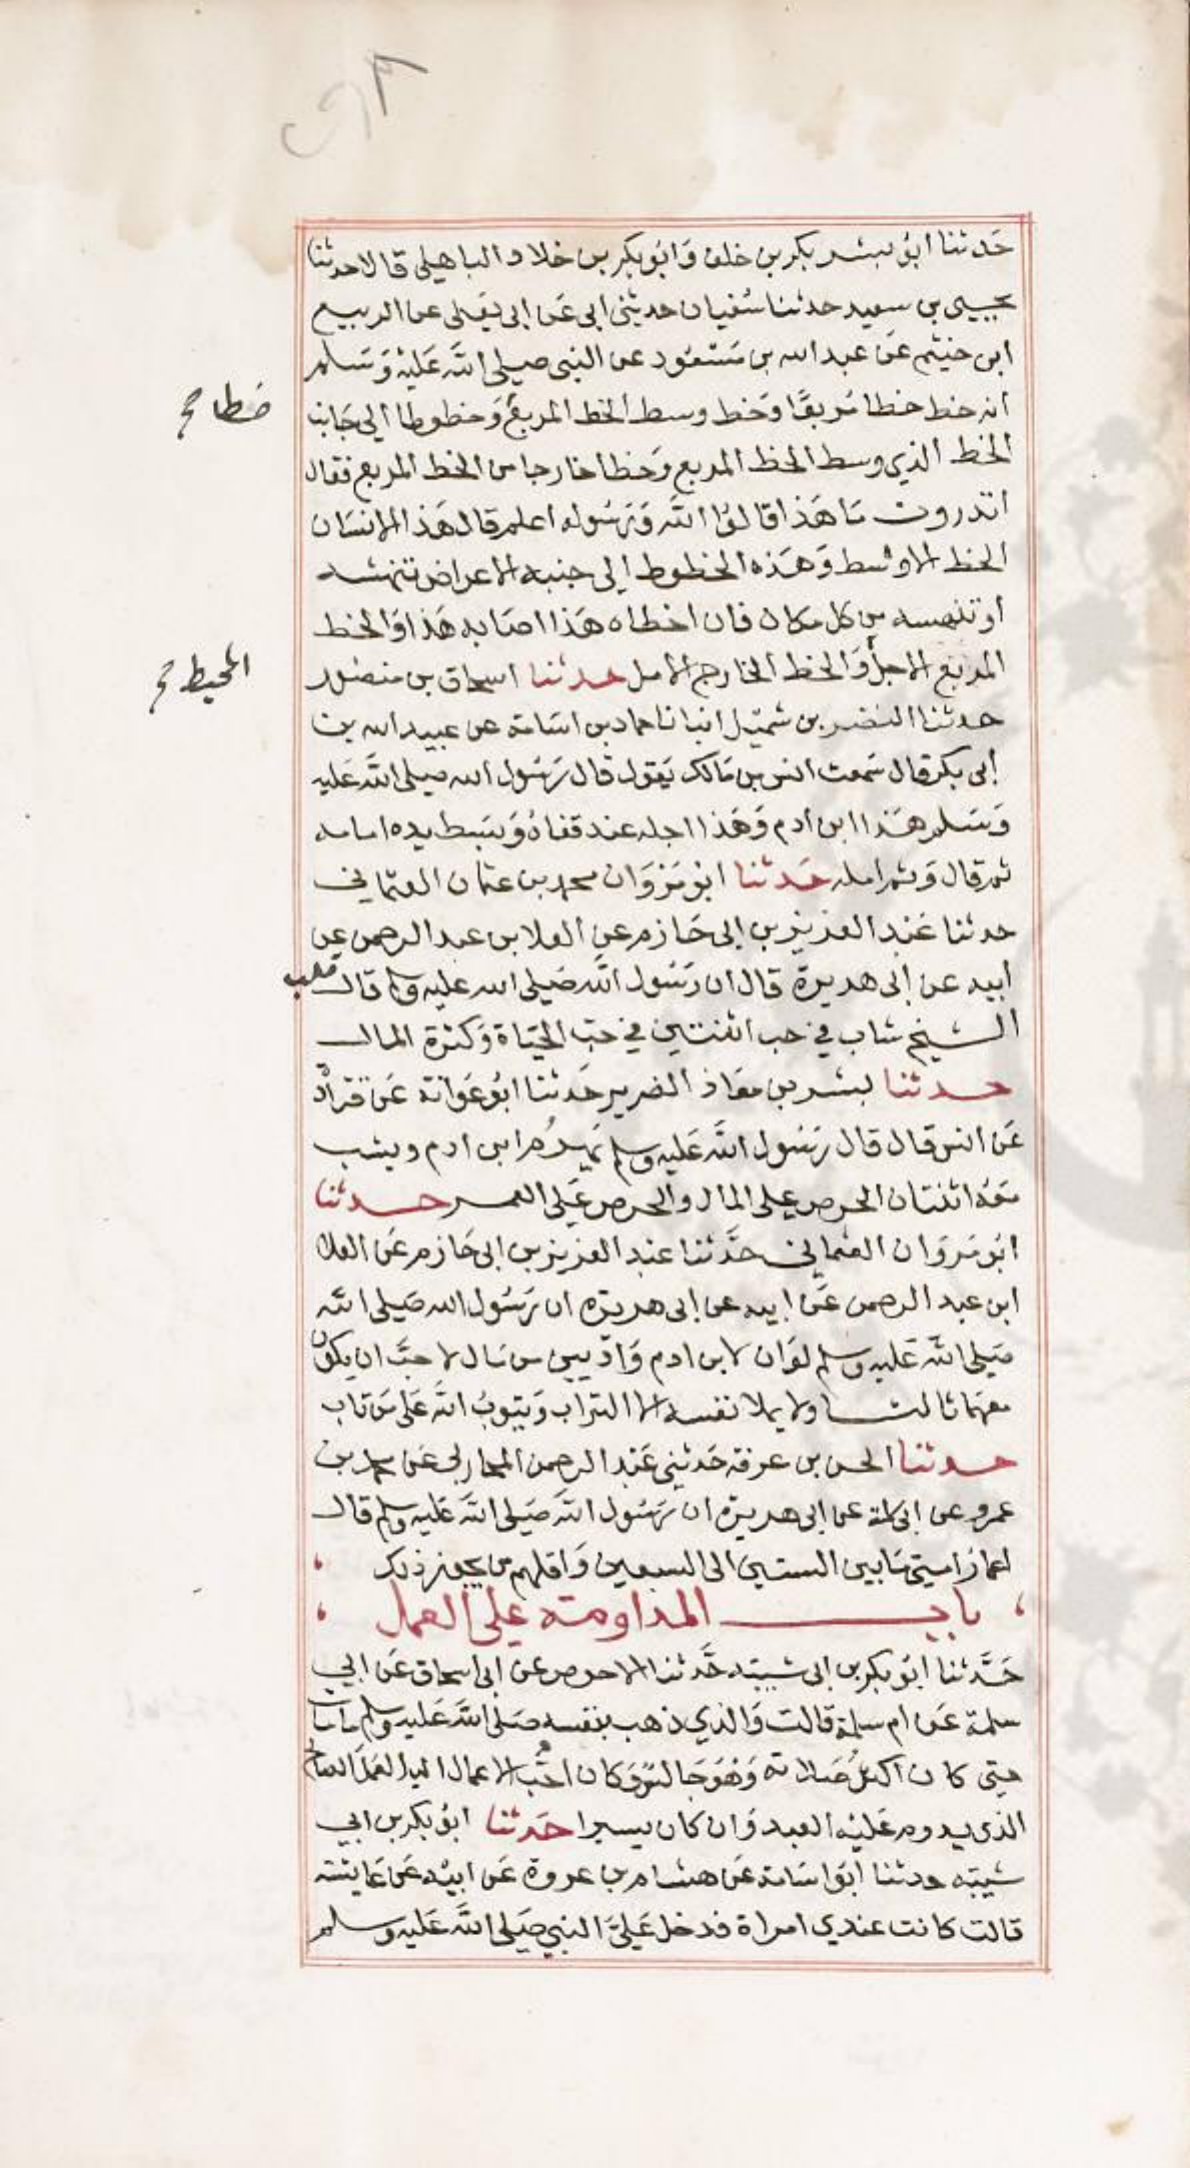 حَدثنا ابوُ بشر بكر بن خلف وَابوُ بكر بن خلاد الباهلي قالا حدثنا
يحيى بن سعيد حدثنا سُفيان حدثني ابي عَن ابي يَعلى عن الربيع
ابن خثيم عَن عبد الله بن مَسْعُود عن النبي صلى اللَّه عَليْه وَسَلم
انه خط خطا مُربعًا وَخط وسط الخط المربع وَخطوطا الى جَانب
خطا صح
الخط الذي وسط الخط المربع وَخطا خارجا من الخط المربع فقال
اتدرون مَا هَذا قالوُا اللَّه وَرَسُوله اعلم قال هَذا الانسَان
الخط الاوْسط وَهَذه الخطوط الى جنبه الاعراض تنهشه
او تنهسه من كل مكان فان اخطاه هَذا اصَابه هَذا وَالخط
المربع الاجل وَالخط الخارج الامل حدثنا اسحاق بن منصُور
المحيط صح
حدثنا النضر بن شميْل انبانا حماد بن اسَامة عن عبيد الله بن
ابي بكر قال سَمعت انس بن مَالك يَقول قال رَسُول الله صلى اللَّه عَليه
وَسَلم هَذا ابن آدم وَهَذا اجله عند قفاهُ وَبَسَط يده امامه
ثم قال وَثم امله حَدثنا ابوُ مَرْوَان محمد بن عثمان العثماني
حدثنا عَبْد العزيز بن ابي حَازم عن العلا بن عبد الرحمن عن
ابيه عن ابي هديرة قال ان رَسُول اللَّه صَلى الله عليه وسلم قال قلب
الشيخ شاب في حب اثنتين في حبّ الحيَاة وَكثرة المال
حدثنا بشر بن معَاذ الضرير حَدثنا ابوُ عَوانة عَن قتادة
عَن انس قال قال رَسُول اللَّه عَليه وسلم يَهْرَمُ ابن ادم ويشب
مَعَهُ اثنتان الحرص على المال والحرص عَلى العمر حدثنا
ابوُ مَرْوَان العثماني حدَّثنا عَبْد العزيز بن ابي حَازم عَن العلا
ابن عبد الرحمن عَن ابيه عن ابي هديرة ان رَسُول الله صَلى اللَّه
صَلى اللَّه عَليه وسلم لوَ ان لابن ادم وَاديين من مَال لاحبَّ ان يكون
معهَما ثالث ولا يملا نفسه الا التراب وَيَتوبُ اللَّه عَلى مَن تاب
حدثنا الحسن بن عرفة حَدثني عَبْد الرحمن المحاربي عَن محمد بن
عمرو عن ابي سلمة عن ابي هديرة ان رَسُول اللَّه صَلى اللَّه عَليه وسلم قال
اعمار امتي مَا بين الستين الى السبعين وَاقلهم من يجوز ذلك
باب المداومة على العمل
حَدَّثنا ابوُ بكر بن ابي شيبة حَدَّثنا الاحوص عن ابي اسحاق عَن ابي
سلمة عَن ام سلمة قالت وَالذي ذهب بنفسه صَلى اللَّه عَليه وسلم مَا مَات
حتى كان اكثرُ صَلاته وَهُوَ جَالسٌ وَكان احَبُّ الاعمال اليه العَمَل الصَالح
الذي يدوم عَليْه العبد وَان كان يسيرا حَدثنا ابوُ بكر بن ابي
شيبة حدثنا ابوُ اسَامة عَن هشام بن عروة عَن ابيْه عَن عَايشة
قالت كانت عندي امراة فدخل عَليَّ النبي صَلى اللَّه عَليه وسلم